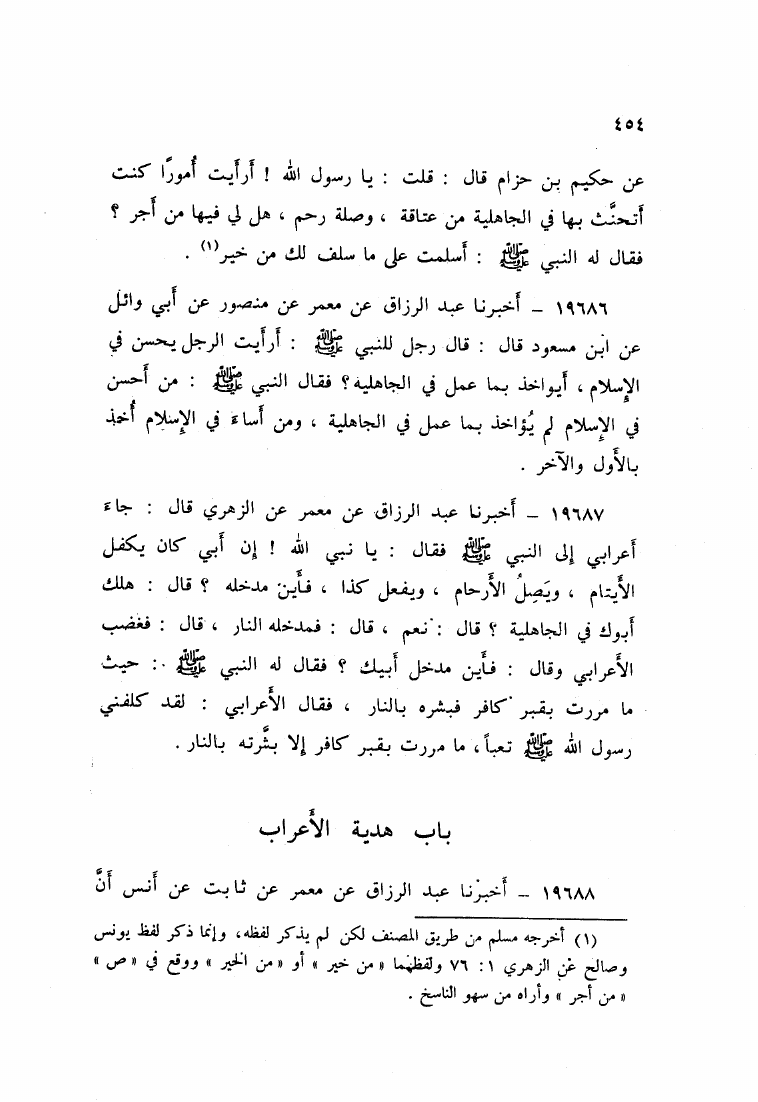 ٤٥٤
عن حكيم بن حزام قال : قلت : يا رسول الله ! أرأيت أمورًا كنت
أتحنَّث بها في الجاهلية من عتاقة ، وصلة رحم ، هل لي فيها من أجر ؟
فقال له النبي ﷺ : أسلمت على ما سلف لك من خير(١) .
١٩٦٨٦ – أخبرنا عبد الرزاق عن معمر عن منصور عن أبي وائل
عن ابن مسعود قال : قال رجل للنبي ﷺ : أرأيت الرجل يحسن في
الإسلام ، أيواخذ بما عمل في الجاهلية ؟ فقال النبي ﷺ : من أحسن
في الإسلام لم يُؤاخذ بما عمل في الجاهلية ، ومن أساءَ في الإسلام أُخذ
بالأول والآخر .
١٩٦٨٧ – أخبرنا عبد الرزاق عن معمر عن الزهري قال : جاءَ
أعرابي إلى النبي ﷺ فقال : يا نبي الله ! إن أبي كان يكفل
الأيتام ، ويَصِلُ الأرحام ، ويفعل كذا ، فأين مدخله ؟ قال : هلك
أبوك في الجاهلية ؟ قال : نعم ، قال : فمدخله النار ، قال : فغضب
الأعرابي وقال : فأين مدخل أبيك ؟ فقال له النبي ﷺ : حيث
ما مررت بقبر كافر فبشره بالنار ، فقال الأعرابي : لقد كلفني
رسول الله ﷺ تعباً ، ما مررت بقبر كافر إلا بشَّرته بالنار .
باب هدية الأعراب
١٩٦٨٨ – أخبرْنا عبد الرزاق عن معمر عن ثابت عن أنس أنَّ
(١) أخرجه مسلم من طريق المصنف لكن لم يذكر لفظه، وإنما ذكر لفظ يونس
وصالح عن الزهري ١ : ٧٦ ولفظهما « من خير » أو « من الخير » ووقع في « ص »
« من أجر » وأراه من سهو الناسخ .